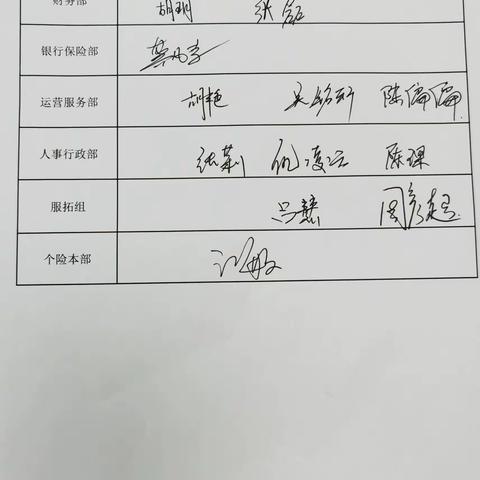 财务部 胡玥 张磊
银行保险部
运营服务部 胡艳 陈偏偏
人事行政部 张莉 仇凌云 陈琛
服拓组 吕慧 周彦超
个险本部 江敏